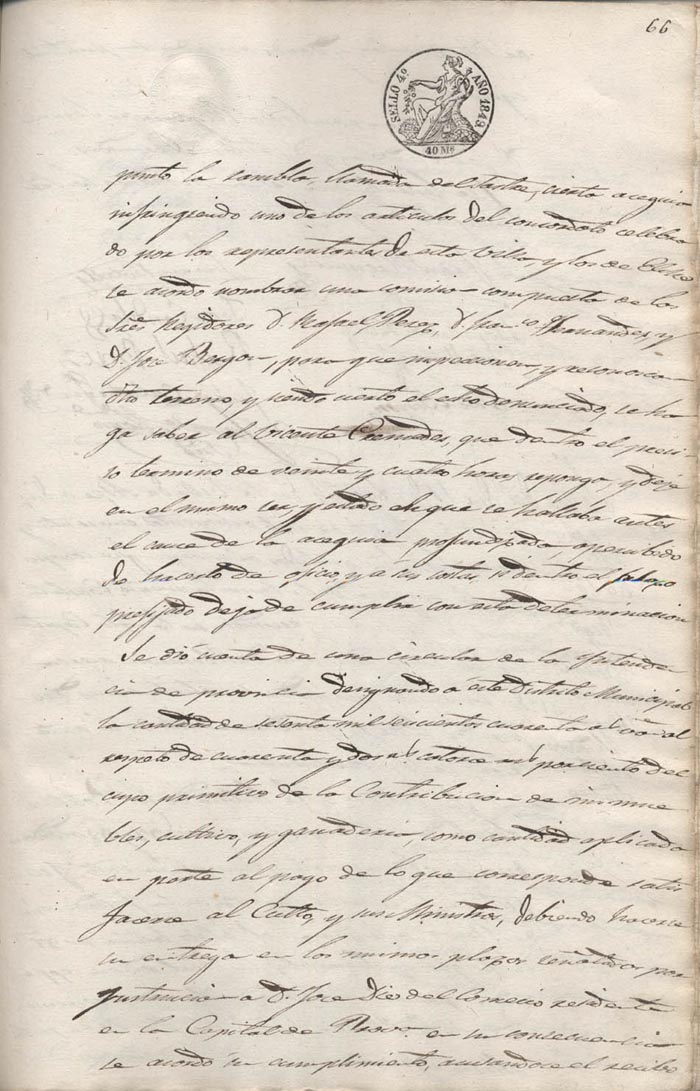 66
SELLO 4º AÑO 1849.
40 Ms
punto la rambla, llamada del Sastre, cierta acequia
infringiendo uno de los articulos del concordato celebra
do por los representantes de esta Villa y los de Elche
se acordo nombrar una comision compuesta de los
Sres Regidores D. Rafael Perez, D. Franco Hernandez y
D. Jose Berger, para que inspeccionen y reconozcan
dho terreno, y siendo cierto el echo denunciado, se ha
ga saber al Vicente Cremades, que dentro el preci
so termino de veinte y cuatro horas reponga, y deje
en el mismo ser, y estado en que se hallaba antes
el cauce de la acequia profundizada apercibido
de hacerlo de oficio y a sus costas si dentro el plazo
prefijado deja de cumplir con esta determinacion
Se dió cuenta de una circular de la Intenden
cia de provincia designando a este Distrito Municipal
la cantidad de sesenta mil seicientos cuarenta rs von al
respeto de cuarenta y dos rs catorce ms por ciento del
cupo primitivo de la Contribucion de inmue
bles, cultivo, y ganaderia, como cantidad aplicada
en parte al pago de lo que corresponde satis
facerse al Culto, y sus Ministros, debiendo hacerse
su entrega en los mismos plazos señalados por
Instruccion a D. Jose Dios del Comercio residente
en la Capital de Prova en su consecuencia
se acordo su cumplimiento, avisandose el recibo